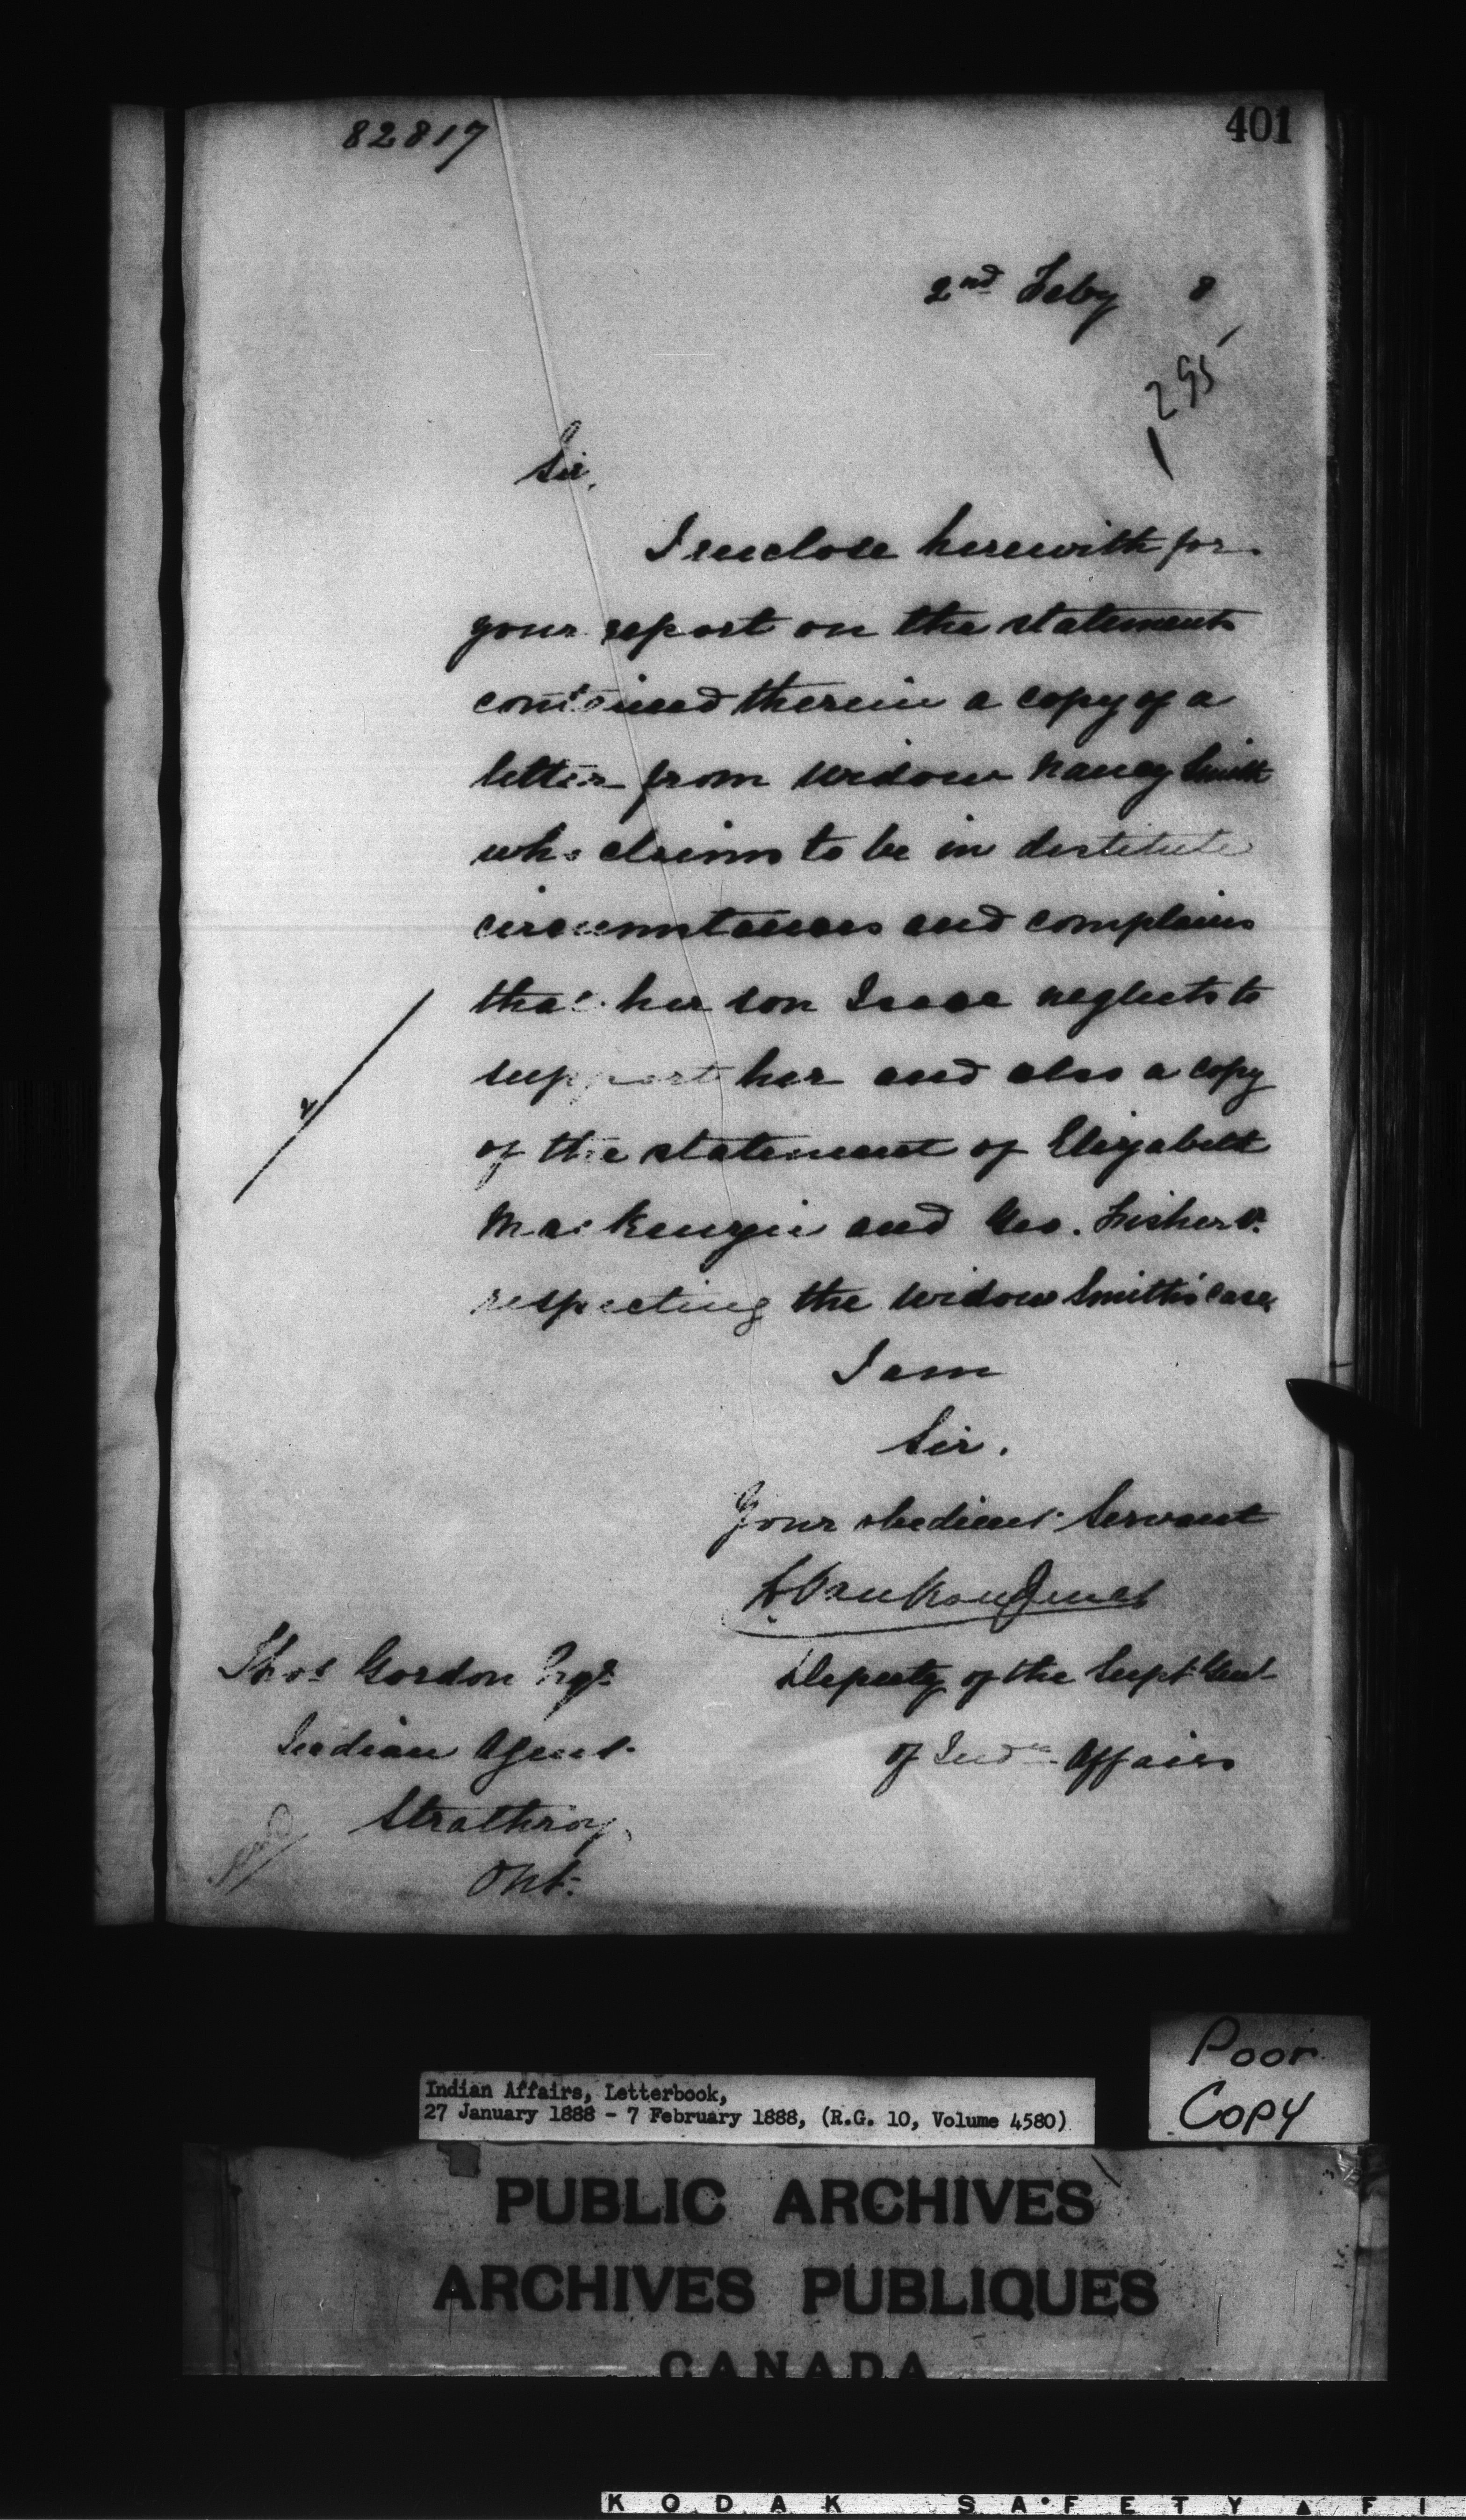 82817
401
2nd Feby 8
295
Sir,
I enclose herewith for
your report on the statements
contained therein a copy of a
letter from Widow Nancy Smith
who claims to be in destitute
circumstances and complains
that her son Isaac neglects to
support her and also a copy
of the statement of Elizabeth
MacKenzie and Geo. Fisher
respecting the Widow Smith's case,
I am
Sir.
Your obedient Servant
L. VanKoughnet
Thos Gordon Esqr
Deputy of the Supt Genl
Indian Agent
of Indn Affairs
Strathroy,
Ont:
Poor
Copy
Indian Affairs, Letterbook,
27 January 1888 - 7 February 1888, (R.G. 10, Volume 4580)
PUBLIC ARCHIVES
ARCHIVES PUBLIQUES
CANADA
KODAK SAFETY FI